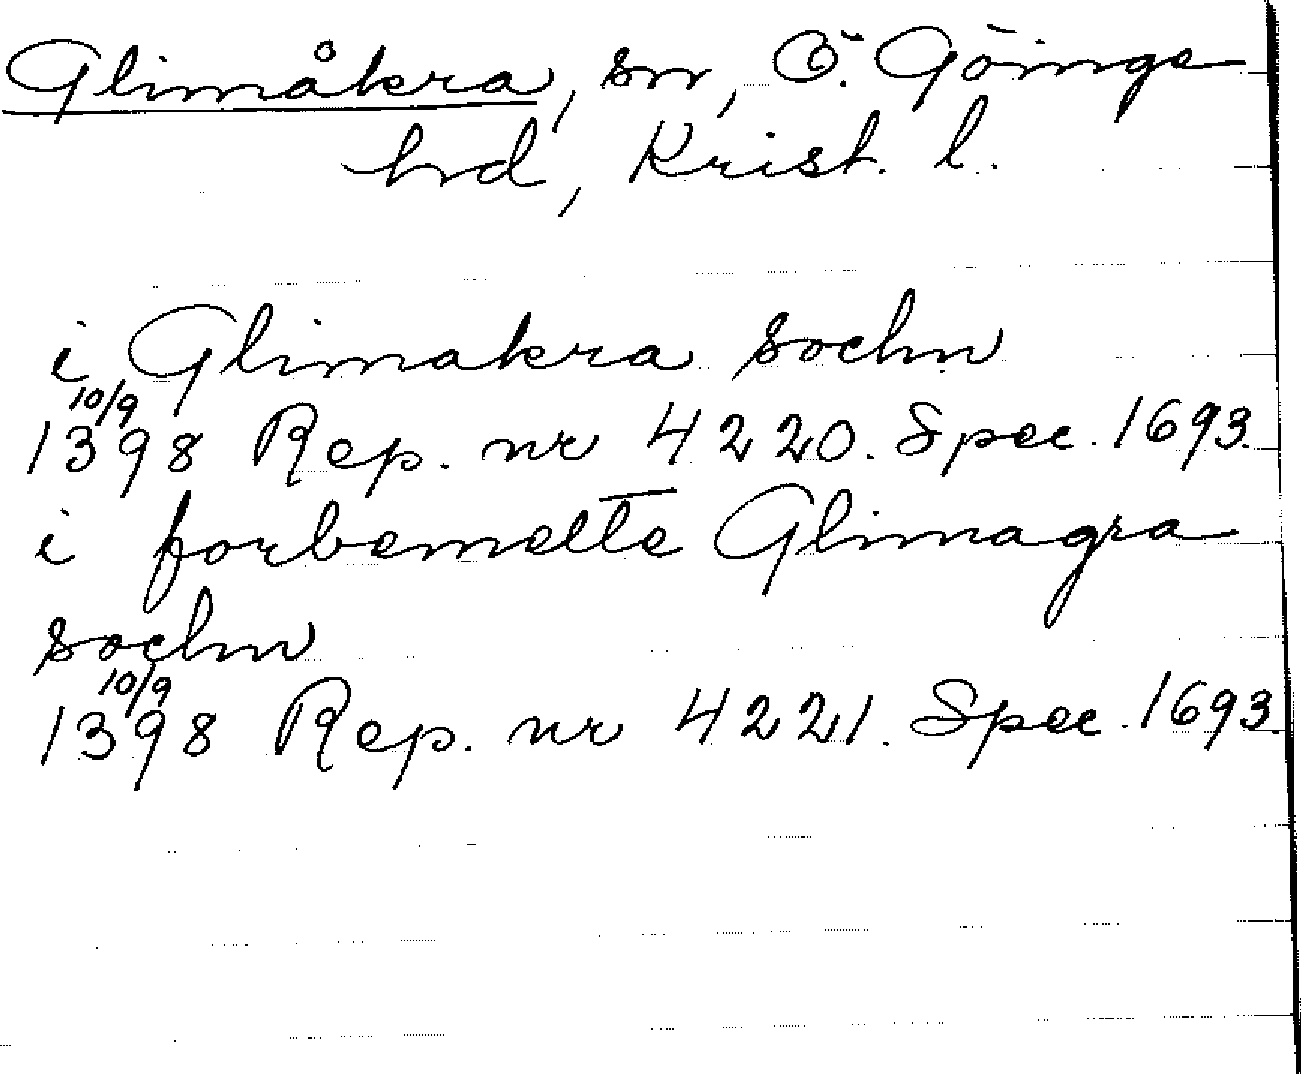 Glimåkra, sn, Ö. Göinge
hd, Krist. l.
i Glimakra sochn
10/9
1398 Rep. nr 4220. Spec. 1693.
i forbemelte Glimagra
sochn
10/9
1398 Rep. nr 4221. Spec. 1693.